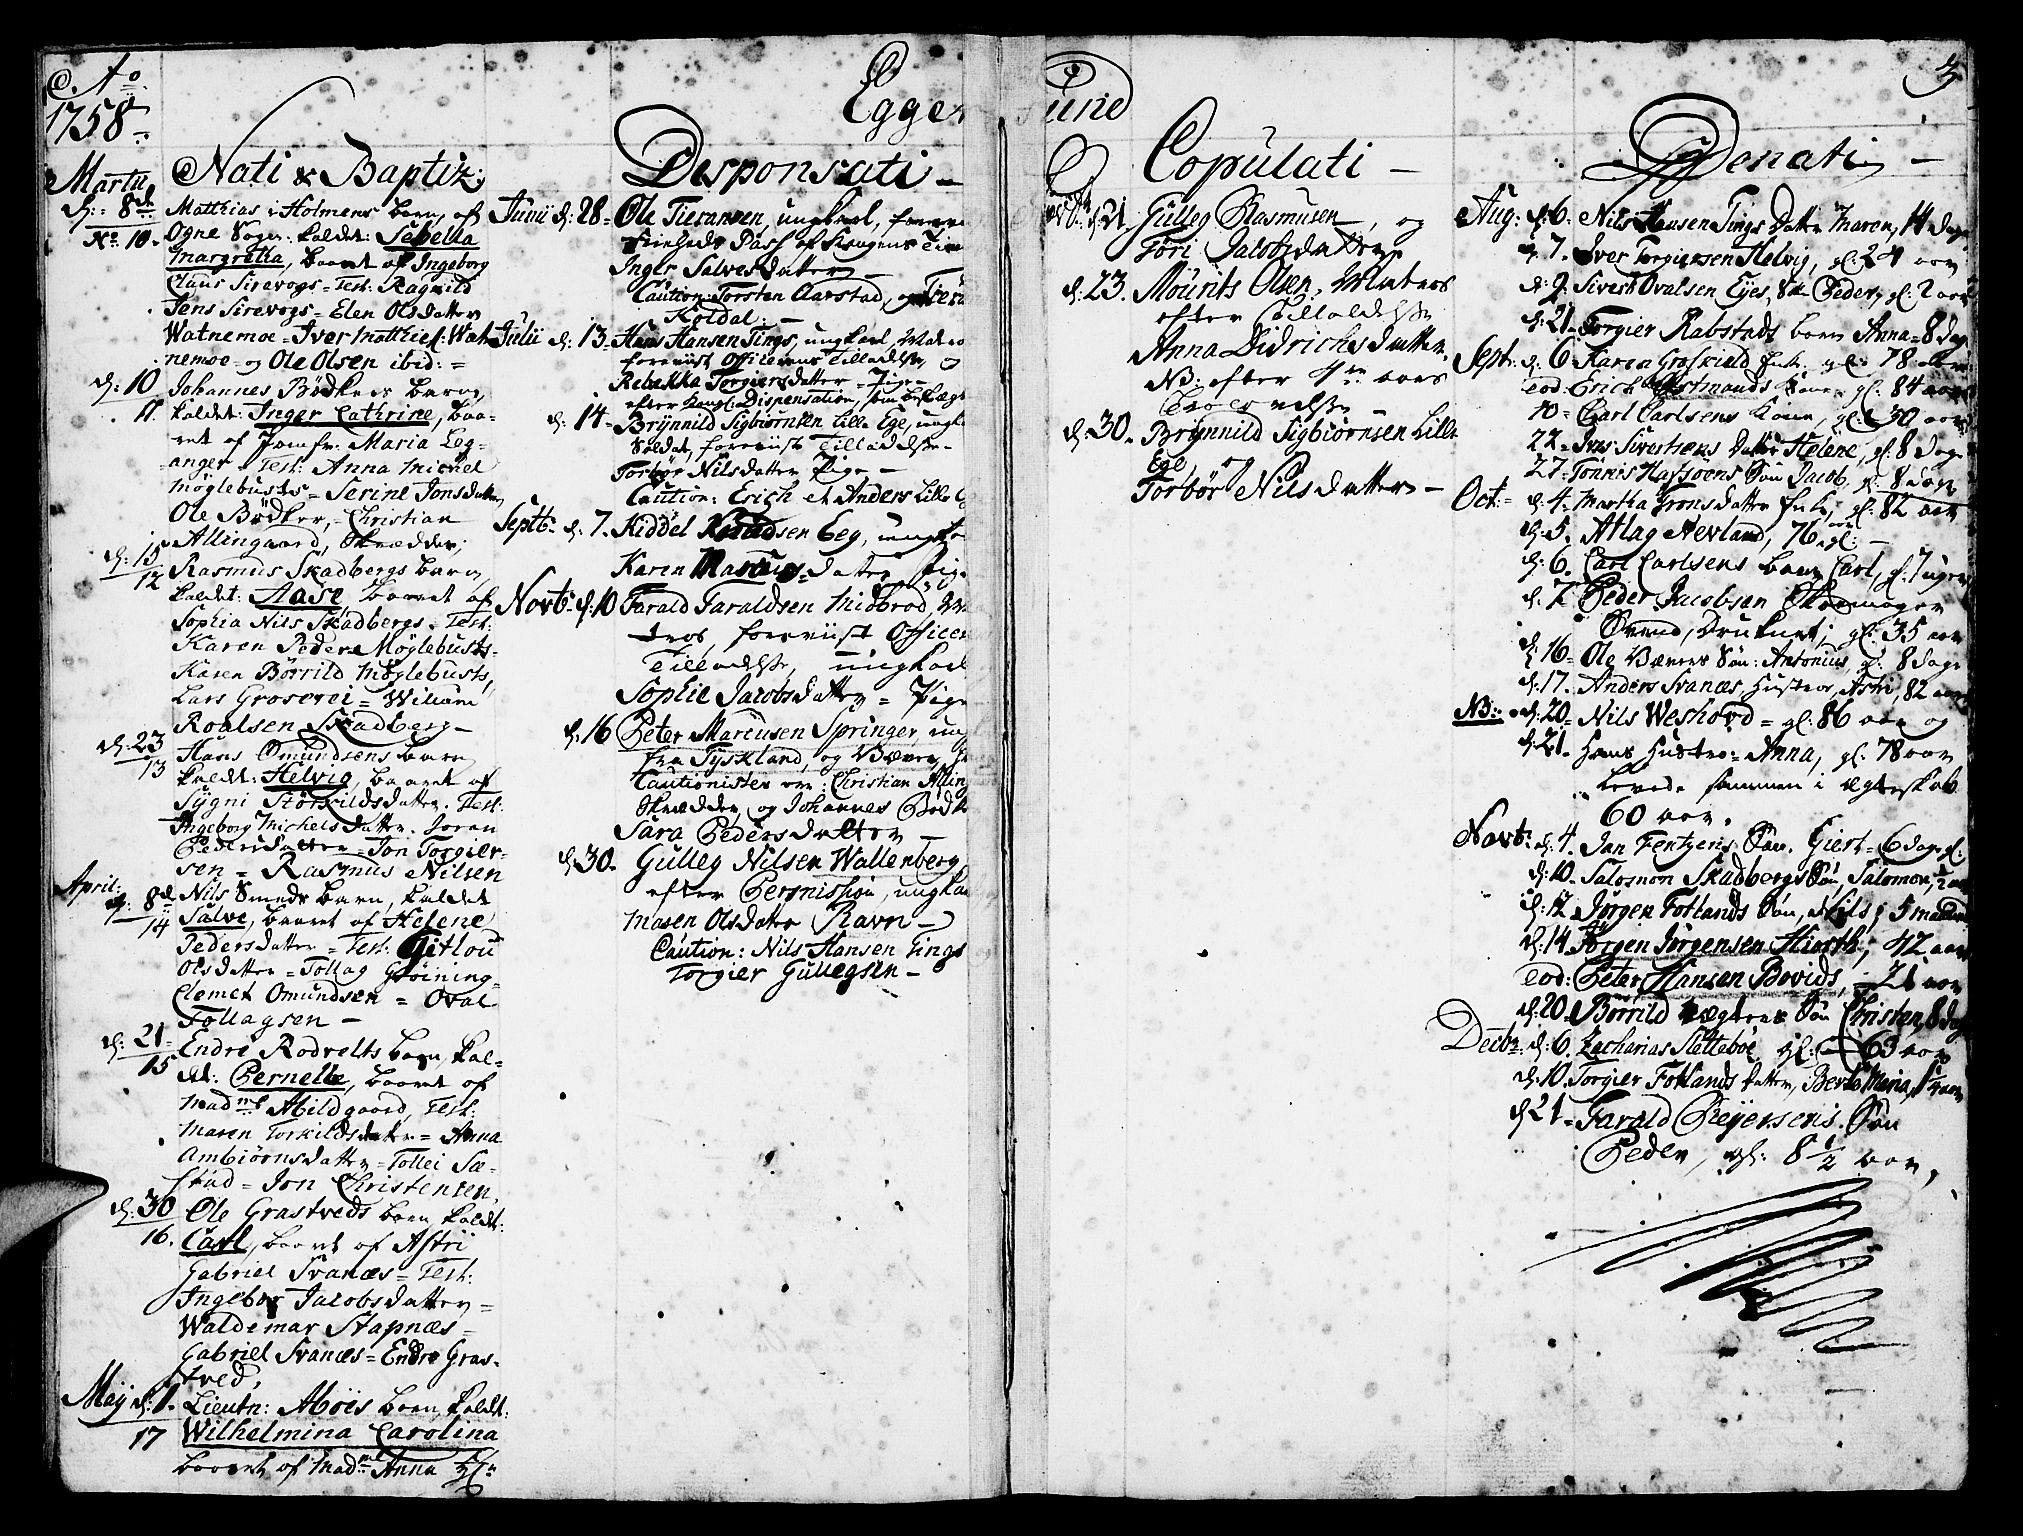 Ao
1758
Eggersund
3
Nati & Baptiz:
Martii
d: 8de
No 10.
Matthias i Holmens barn, af
Ogne Sogn: kaldet: Sebella
Margretha, baaret af Ingeborg
Claus Sirevogs = Test: Ragnild
Jens Sirevogs = Elen Olsdatter
Watnemoe = Iver Matthies: Wat-
nemoe og Ole Olsen ibid: =
d: 10
11.
Johannes Bödkers barn,
kaldet: Inger Cathrine, baa-
ret af Jomfr. Maria Leg-
anger = Test: Anna Michel
Møglebusts = Serine Jonsdatter
Ole Bödker, = Christian
Allingaard, Skrædder;
d: 15
12
Rasmus Skadbergs barn
kaldet: Aase baaret af
Sophia Nils Skadbergs. Test:
Karen Peder Møglebusts =
Karen Börrild Møglebusts,
Lars Groserei = Willum
Roalsen Skadberg =
d: 23
13
Hans Omundsens barn
kaldt: Helvig, baaret af
Sygni Störkildsdatter. Test:
Ingeborg Michelsdatter. Joren
Pedersdatter = Jon Torgier-
sen = Rasmus Nilsen
April:
d: 8de
14
Nils Smeds barn, kaldet
Salve, baaret af Helene
Pedersdatter = Test: Gitlou
Olsdatter = Tollag Grøining =
Clemet Omundsen = Oval
Tollagsen =
d: 21
15
Endre Rodvelts barn, kal-
det: Pernelle, baaret af
Madme Abildgaard, Test:
Maren Torkildsdatter = Anna
Ambiörnsdatter = Tollei Sæ-
stad = Jon Christensen,
d: 30
16.
Ole Grastveds barn kaldt:
Carl, baaret af Astri
Gabriel Svanæs = Test:
Ingebor Jacobsdatter =
Waldemar Stapnæs =
Gabriel Svanæs = Endre Gras-
tved,
Maij d: 1.
17
Lieutn: Moïes barn, kaldt:
Wilhelmina Carolina
baaret af Madme Anna
Desponsati =
Junii d: 28 = Ole Tieransen, ungkarl,
Pass af
Inger Salvesdatter =
Caution: Torsten Aarstad, og
Koldal: =
Julii d: 13. Hans Hansen Tings, ungkarl, Matro
foreviist Officierens Tilladelse og
Rebekka Torgiersdatter = Pige =
efter Kongl: Dispensation,
d: 14 = Brynnild Sigbiörnsen Lille Ege, ungk
Soldat, foreviist Tilladelse =
Torbør Nilsdatter Pige =
Caution: Erich et Anders Lille
Septb: d: 7. Kiddel Knudsen Eeg, ungk
Karen Marcusdatter Pige
Novb: d: 10 Tarald Taraldsen Midbrod,
tros, foreviist Officer
Tilladelse, ungkarl
Sophie Jacobsdatter = Pige
d: 16 Peter Marcusen Springer, ung
fra Tyskland, og Væver,
Cautionister ere: Christian Alling
Skrædder, og Johannes Bödk
Sara Pedersdatter =
d: 30. Gulleg Nilsen Wallenberg,
efter Permission, ungkar
Maren Olsdatter Ravn =
Caution: Nils Hansen Tings
Torgier Gullegsen =
Copulati =
d: 21 Gulleg Rasmusen, og
Töri Jacobsdatter
d: 23. Mourits Olsen, Matros
efter Tilladelse
Anna Didrichsdatter.
NB: efter
d: 30. Brynnild Sigbiörnsen Lille
Ege, og
Torbör Nilsdatter =
Denati =
Aug: d: 6. Nils Hansen Tings Datter Maren, 14 dage
d. 7. Iver Torgiersen Helvig, gl: 24 aar
d. 9. Sivert Ovalsen Eyes, Sön Peder, gl: 2 aar
d: 21. Torgier Rabstads barn Anna = 8 dag
Sept: d: 6 = Karen Groskield Enke, gl: 78
Eod: Erich Østmands Kone, gl: 84 aar
10 = Carl Carlsens Kone, gl: 30 aar
22 = Datter Helene, gl: 8 dage
27: Tönnis Hafsöens Sön Jacob, gl: 8 dage
Oct: = d: 4. Martha Gronsdatter Enke, gl: 82 aar
d: 5. Atlag Nevland, 76 aar gl: =
d: 6. Carl Carlsens barn Carl, gl: 7 uger
d: 7 Peder Jacobsen Skomager
Svend, Druknet, gl: 35 aar
d: 16 = Ole Væver Sön: Antonius, gl: 8 dage
d: 17. Anders Svanæs, Hustroe, Astri, 82 aar
NB: d: 20 = Nils Weshovd = gl: 86 aar og
d: 21. Hans Hustroe: Anna, gl: 78 aar
Levede sammen i Ægteskab
60 aar.
Novb: d: 4. Jan Fentzens Sön. Giert = 6 dage gl:
d: 10. Salomon Skadbergs Sön, Salomon,
d: 12 Jörgen Fotlands Sön, Nils; 5 maaneder
d: 14 Jörgen Jörgensen Hiorth, 42 aar
Eod: Peter Hansen Bovids, = 21 aar
d: 20 = Börrild Sön Christen, 8 dag
Decbr: d: 6. Zacharias Slettebøe, gl: 63 aar
d: 10. Torgier Fotlands Datter, Berte Maria,
d: 21 = Tarald Peijersens Sön
Peder, gl: 8 1/2 aar,